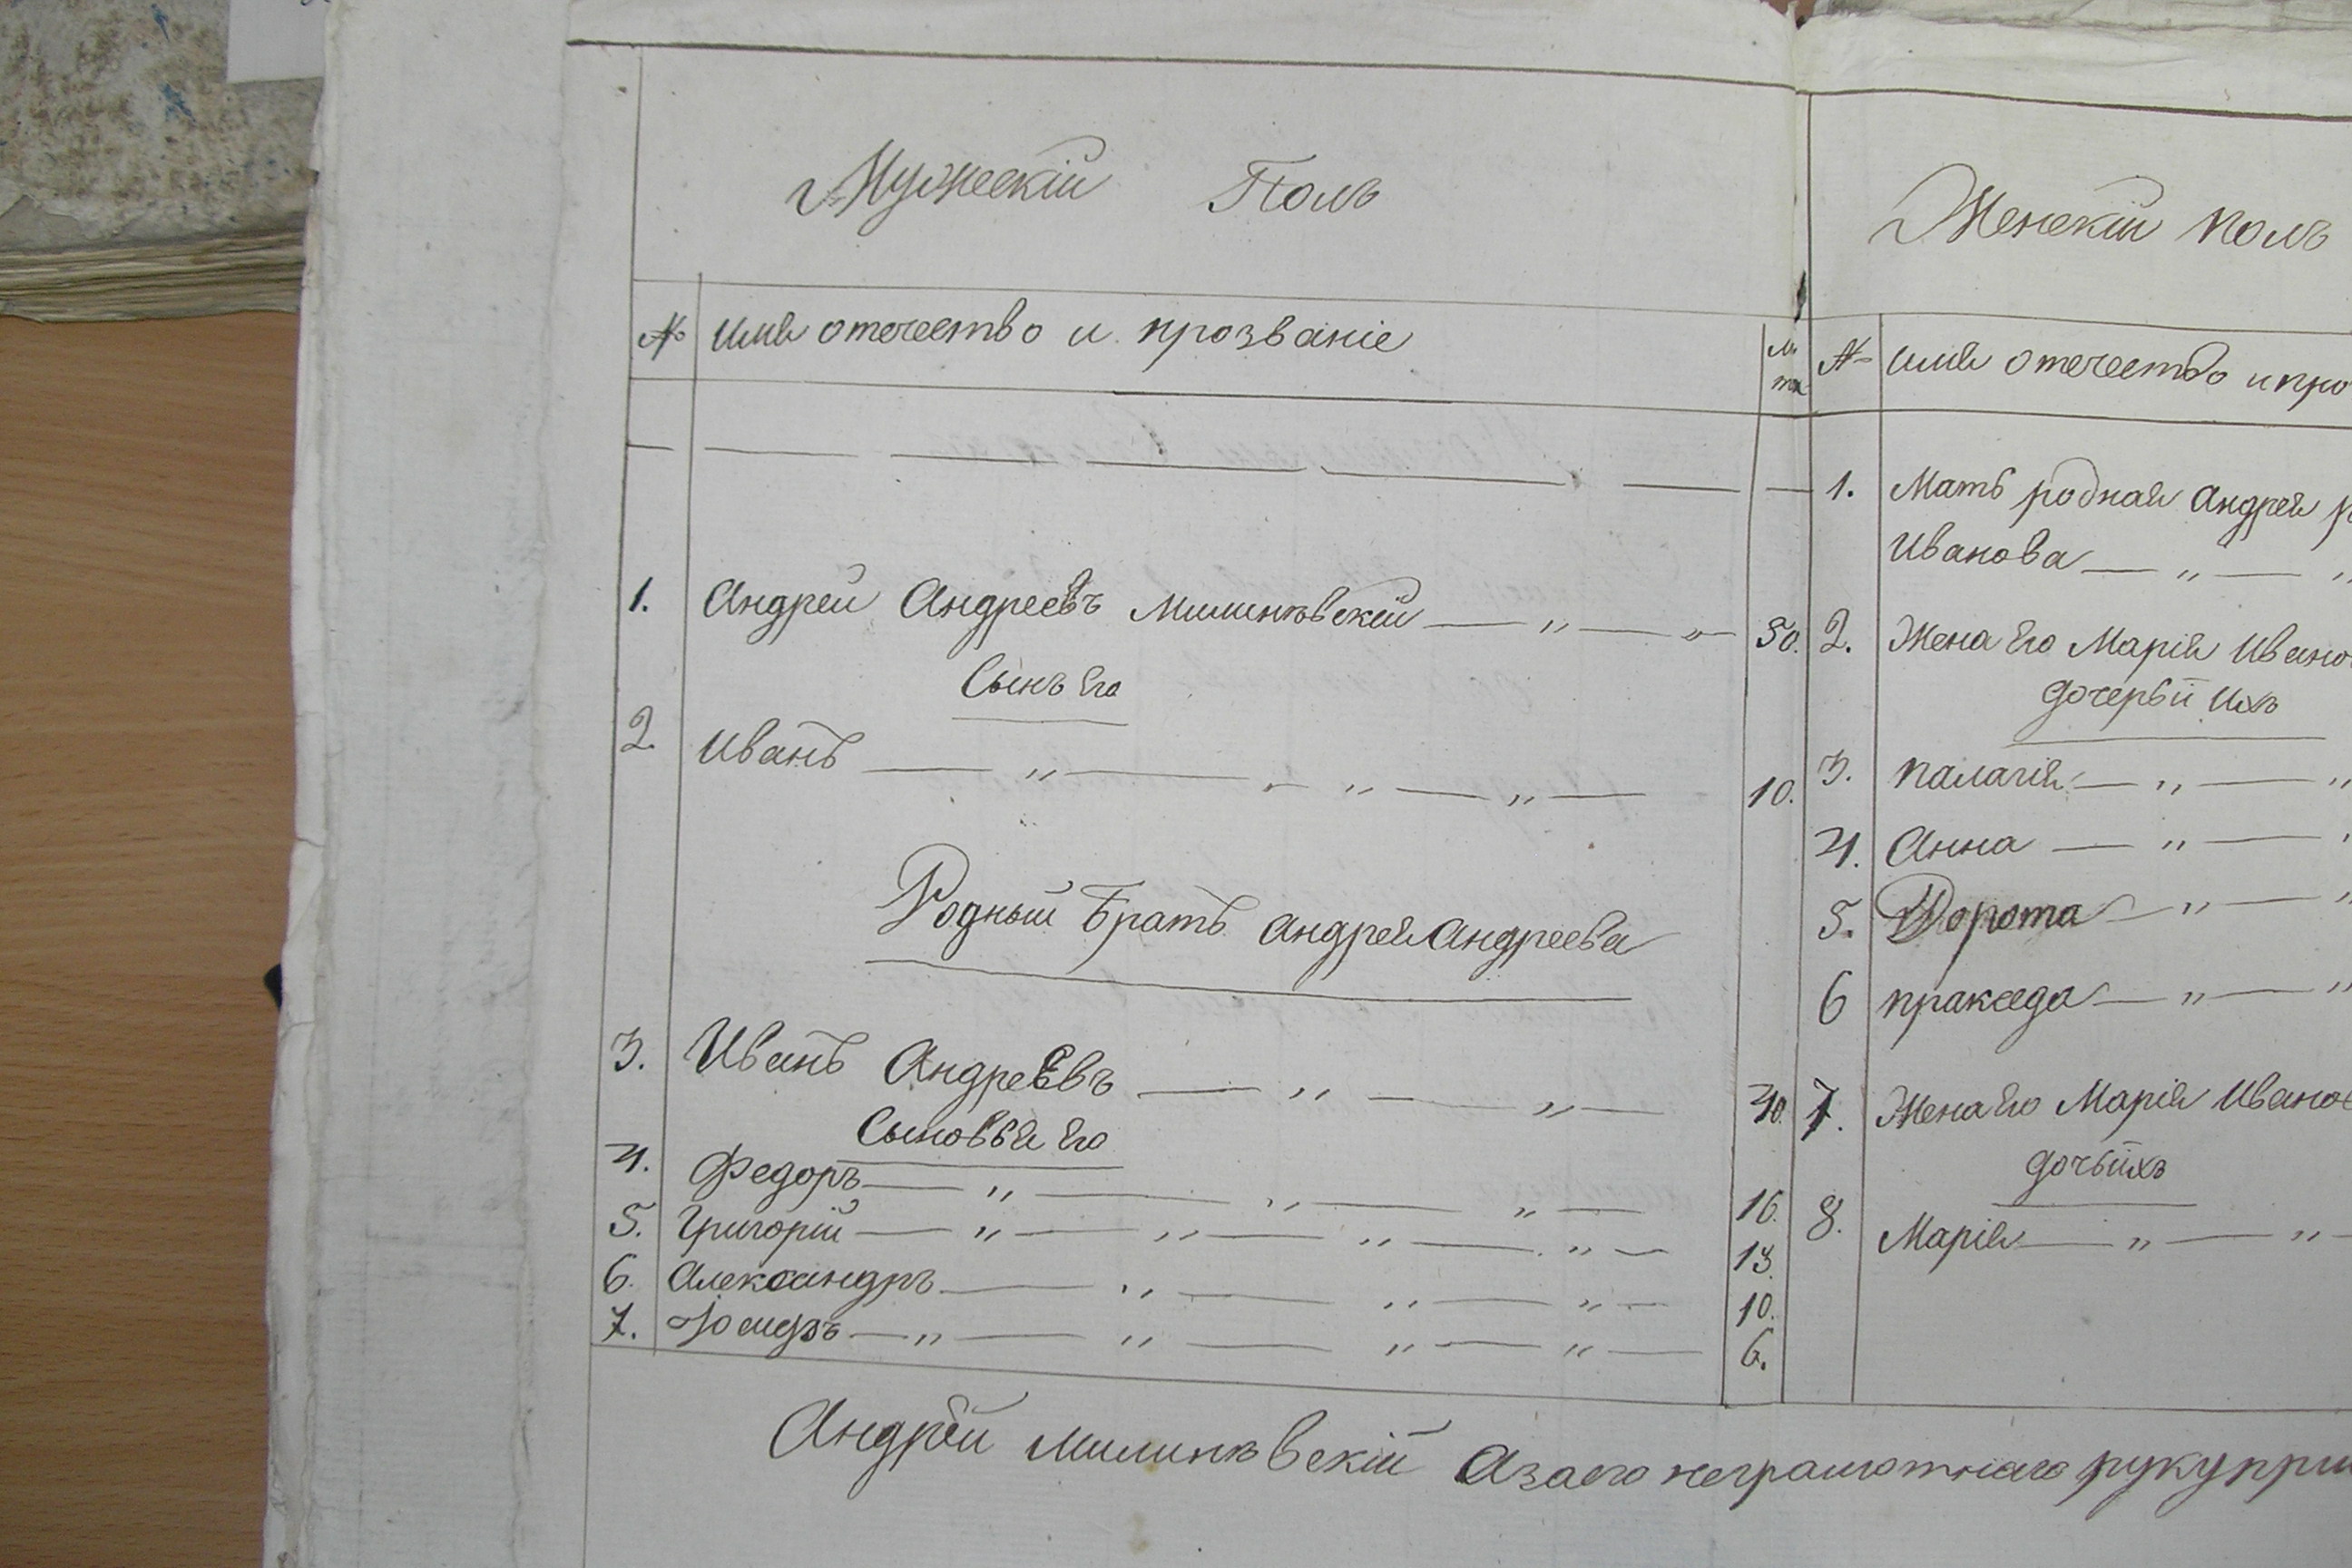 Мужескій Полъ
№ имя отечество и прозваніе
ле
та
1. Андрей Андреевъ Милинковскій — „ — „ — 50.
Сынъ Его
2. Иванъ — „ — „ — „ — „ — 10.
Родный Братъ Андрея Андреева
3. Иванъ Андреевъ — „ — „ — 40.
Сыновья Его
4. Федоръ — „ — „ — „ — 16.
5. Григорій — „ — „ — „ — „ — 13.
6. Александръ — „ — „ — „ — 10.
7. Юзифъ — „ — „ — „ — „ — 6.
Женскій полъ
№ имя отечество и про
1. Мать родная Андрея
Иванова — „ — „
2. Жена Его Марія Ивано
дочерьи Ихъ
3. палагія — „ — „
4. Анна — „ — „
5. Дорота — „ — „
6 пракседа — „ — „
7. Жена Его Марія Иванов
дочь ихъ
8. Марія — „ — „ —
Андрей Милинковскій Азаего неграмотнаго рукупри